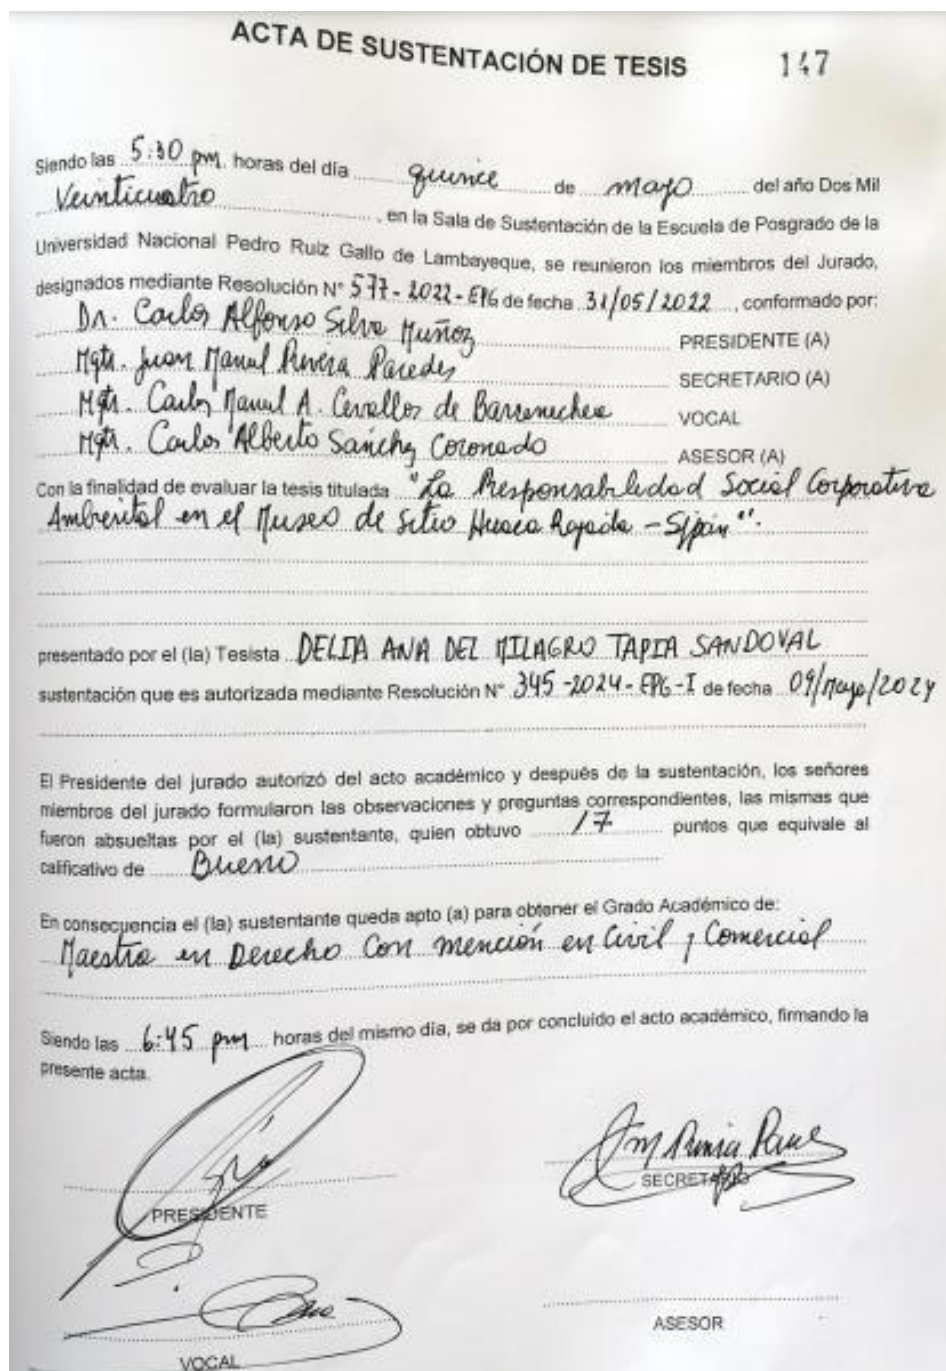 ACTA DE SUSTENTACIÓN DE TESIS 147
Siendo las 5:30 pm. horas del día quince de mayo del año Dos Mil
Veinticuatro, en la Sala de Sustentación de la Escuela de Posgrado de la
Universidad Nacional Pedro Ruiz Gallo de Lambayeque, se reunieron los miembros del Jurado,
designados mediante Resolución N° 577-2022-EPG de fecha 31/05/2022, conformado por:
Dr. Carlos Alfonso Silva Muñoz PRESIDENTE (A)
Mgtr. Juan Manuel Rivera Paredes SECRETARIO (A)
Mgtr. Carlos Manuel A. Cevallos de Barrenechea VOCAL
Mgtr. Carlos Alberto Sánchez Coronado ASESOR (A)
Con la finalidad de evaluar la tesis titulada "La Responsabilidad Social Corporativa
Ambiental en el Museo de Sitio Huaca Rajada - Sipán".
presentado por el (la) Tesista DELIA ANA DEL MILAGRO TAPIA SANDOVAL
sustentación que es autorizada mediante Resolución N° 345-2024-EPG-I de fecha 09/mayo/2024
El Presidente del jurado autorizó del acto académico y después de la sustentación, los señores
miembros del jurado formularon las observaciones y preguntas correspondientes, las mismas que
fueron absueltas por el (la) sustentante, quien obtuvo 17 puntos que equivale al
calificativo de Bueno
En consecuencia el (la) sustentante queda apto (a) para obtener el Grado Académico de:
Maestra en Derecho Con mención en Civil y Comercial
Siendo las 6:45 pm horas del mismo día, se da por concluido el acto académico, firmando la
presente acta.
PRESIDENTE
SECRETARIO
VOCAL
ASESOR